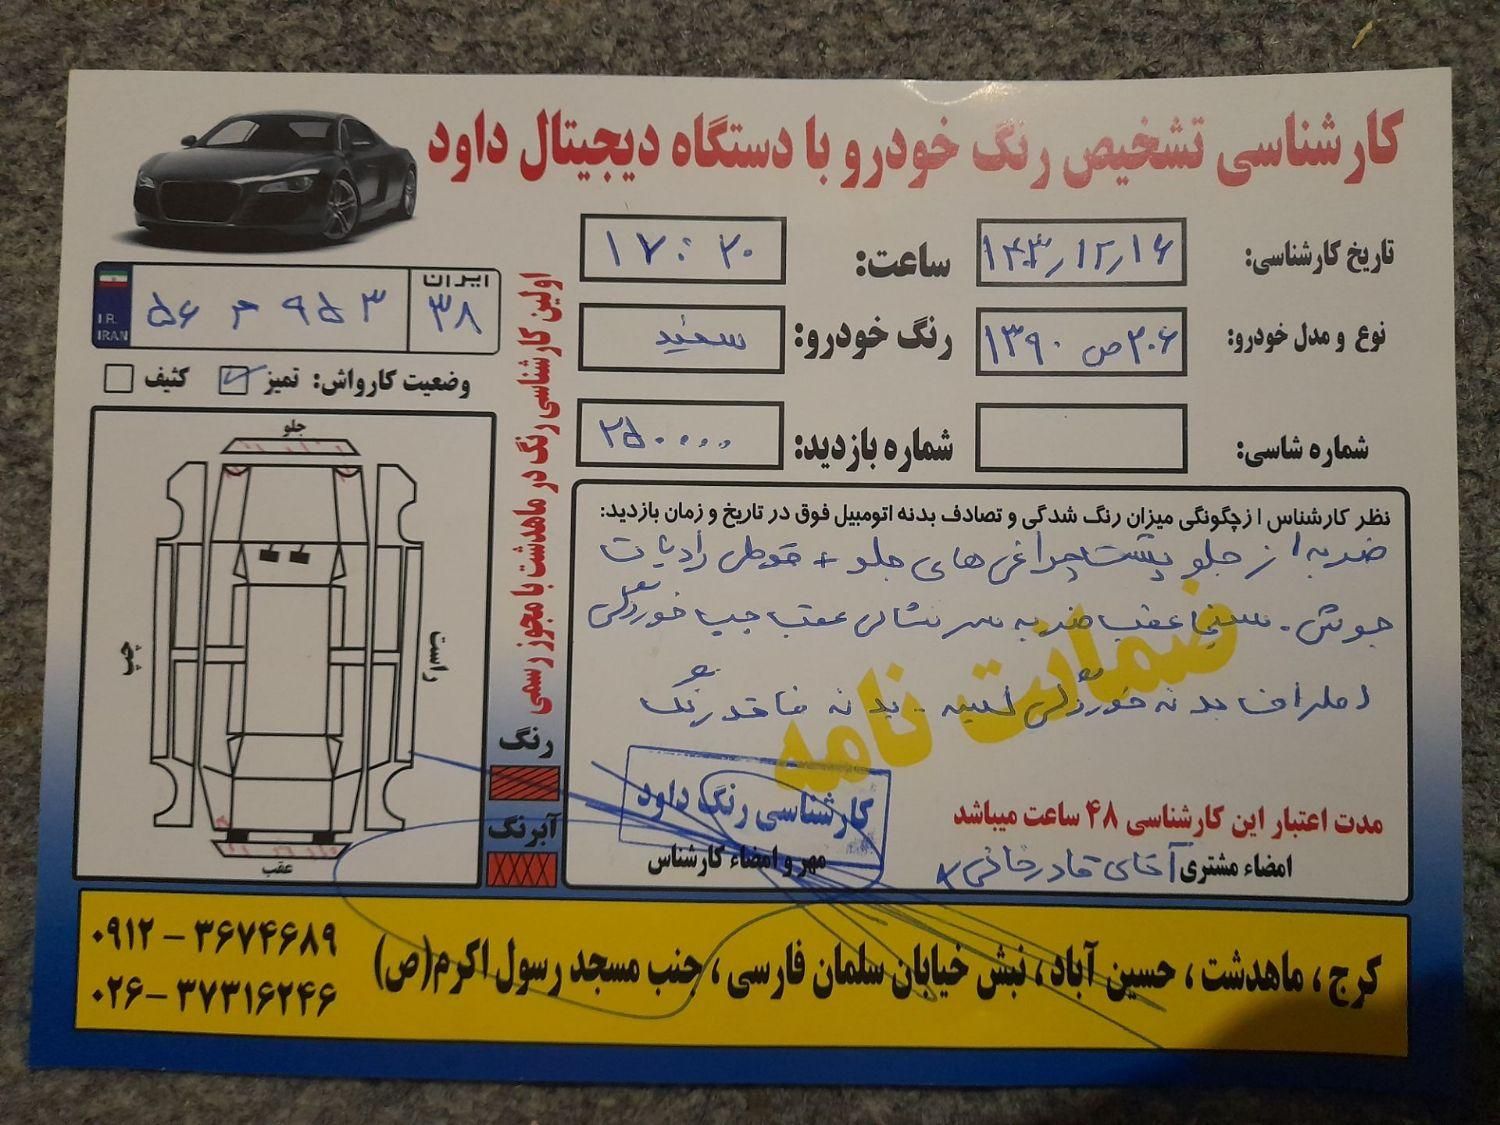 کارشناسی تشخیص رنگ خودرو با دستگاه دیجیتال داود
تاریخ کارشناسی: ۱۴۰۳/۱۲/۱۶
ساعت: ۱۷:۲۰
نوع و مدل خودرو: ۲۰۶ ص ۱۳۹۰
رنگ خودرو: سفید
شماره شاسی:
شماره بازدید: ۲۵۰۰۰۰۰
ایران
۳۸
۵۶ م ۹۵۳
I.R.
IRAN
وضعیت کارواش: تمیز کثیف
اولین کارشناسی رنگ در ماهدشت با مجوز رسمی
جلو
راست
چپ
عقب
رنگ
آبرنگ
نظر کارشناس از چگونگی میزان رنگ شدگی و تصادف بدنه اتومبیل فوق در تاریخ و زمان بازدید:
ضربه از جلو پشت چراغی های جلو + قوطی رادیات
جوش - سینی عقب ضربه سر نشان عقب چپ خوردگی
اطراف بدنه خوردگی لسیه - بدنه فاقد رنگ
ضمانت نامه
کارشناسی رنگ داود
مهر و امضاء کارشناس
مدت اعتبار این کارشناسی ۴۸ ساعت میباشد
امضاء مشتری آقای قادرخانی
کرج ، ماهدشت ، حسین آباد ، نبش خیابان سلمان فارسی ، جنب مسجد رسول اکرم(ص)
۰۹۱۲ – ۳۶۷۴۶۸۹
۰۲۶ – ۳۷۳۱۶۲۴۶